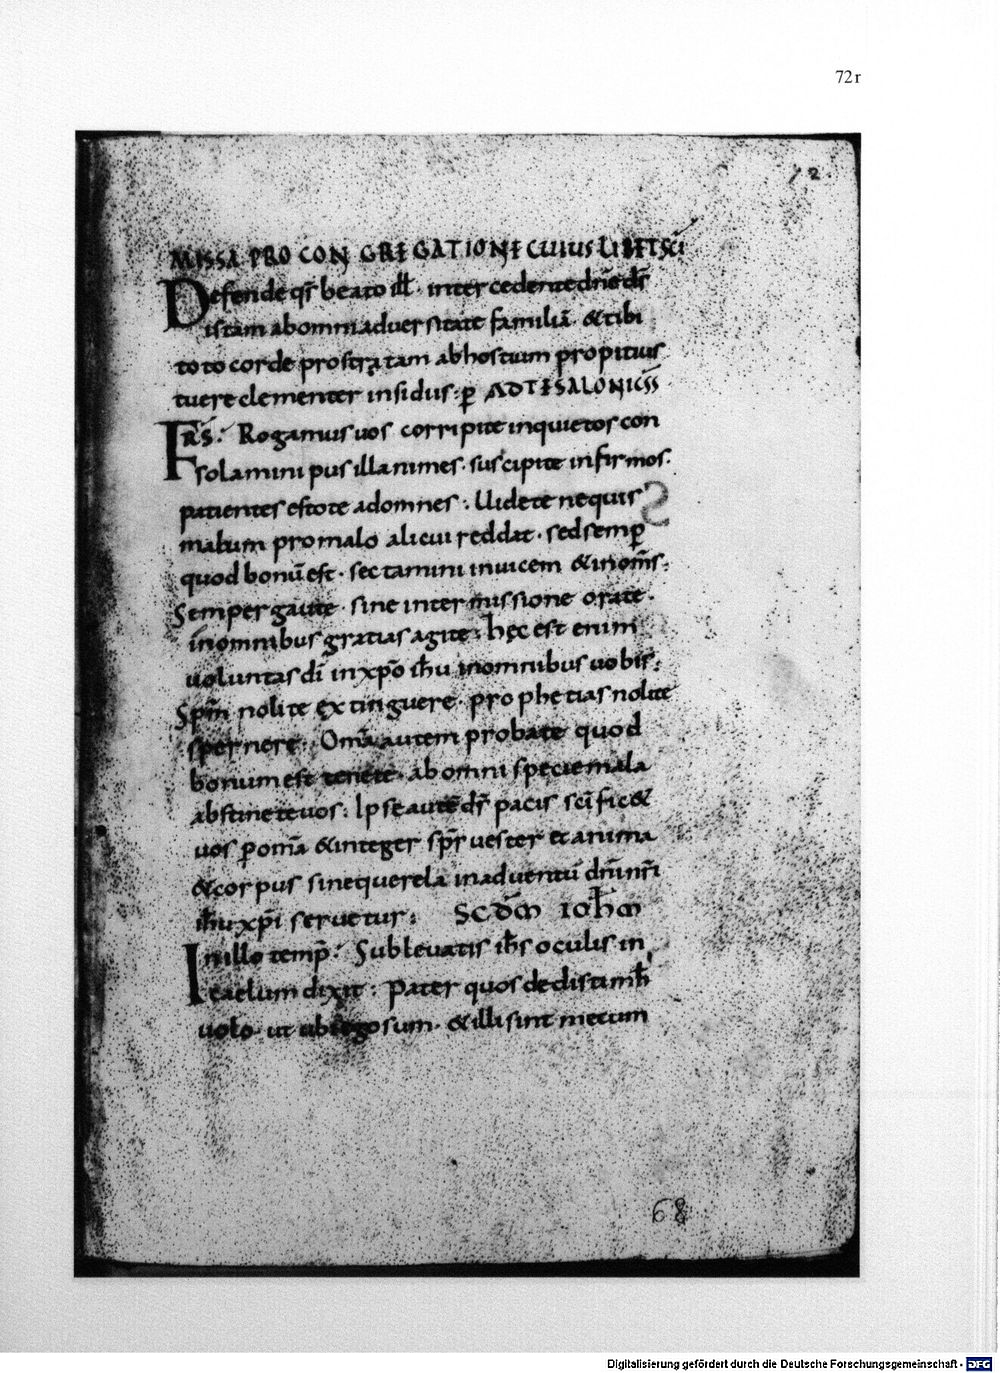 72r
72.
MISSA PRO CONGREGATIONE CUIUS LIBET SCI
Defende qs̄ beato ill̄. intercedente dn̄e ds̄
istam abomni aduersitate familiā. &tibi
toto corde prostratam abhostium propitius
tuere clementer insidiis: ꝑ ADTESALONICSS
FRS̄: Rogamus uos corripite inquietos con
solamini pusillanimes. suscipite infirmos.
patientes estote adomnes: Uidete nequis
malum promalo alicui reddat. sed semꝑ
quod bonū est. sectamini inuicem &inom̄s:
Semper gaudete. sine intermissione orate.
inomnibus gratias agite: hęc est enim
uoluntas dī inxp̄o ih̄u inomnibus uobis:
Spm̄ nolite extinguere. prophetias nolite
spernere: Om̄a autem probate quod
bonum est tenete. abomni specie mala
abstinete uos: Ipse autē ds̄ pacis sc̄ific&
uos ꝑ om̄a &integer sps̄ uester et anima
&corpus sinequerela inaduentū dn̄i nr̄i
ih̄u xp̄i seruetur: SCD̄M IOH̄M
Inillo temp̄: Subleuatis ih̄s oculis in
caelum dixit: Pater quos dedisti mh̄
uolo. ut ubi ego sum. &illi sint mecum
68
Digitalisierung gefördert durch die Deutsche Forschungsgemeinschaft - DFG